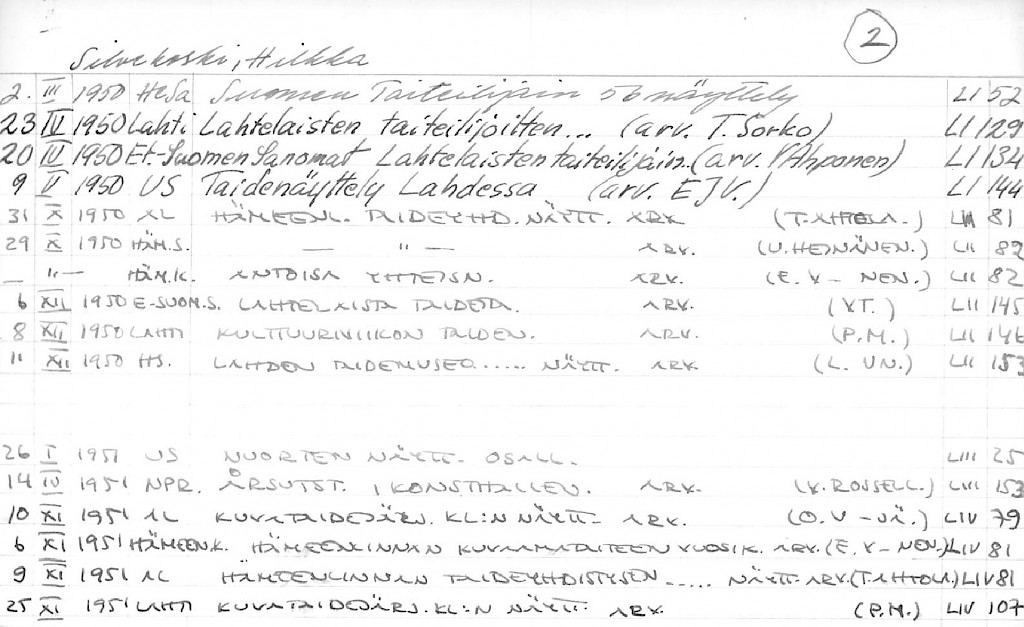 2
Silvekoski, Hilkka
2. III 1950 HeSa Suomen Taiteilijain 56 näyttely LI 52
23 IV 1950 Lahti Lahtelaisten taiteilijoitten... (arv. T. Sorko) LI 129
20 IV 1950 Et.-Suomen Sanomat Lahtelaisten taiteilijain.. (arv. V Ahponen) LI 134
9 V 1950 US Taidenäyttely Lahdessa (arv. EJV.) LI 144
31 X 1950 AL HÄMEENL. TAIDEYHD. NÄYTT. ARV. (T. AHTOLA.) LII 81
29 X 1950 HÄM.S. — " — ARV. (U. HEINÄNEN.) LII 82
— " — HÄM.K. ANTOISA YHTEISN. ARV. (E. V – NEN.) LII 82
6 XII 1950 E-SUOM.S. LAHTELAISTA TAIDETTA. ARV. (YT.) LII 145
8 XII 1950 LAHTI KULTTUURIVIIKON TAIDEN. ARV. (P.M.) LII 146
11 XII 1950 HS. LAHDEN TAIDEMUSEO..... NÄYTT. ARV. (L. VN.) LII 153
26 I 1951 US NUORTEN NÄYTT- OSALL. LIII 25
14 IV 1951 NPR. ÅRSUTST. I KONSTHALLEN. ARV. (V. ROSSELL.) LIII 153
10 XI 1951 AL KUVATAIDEJÄRJ. KL:N NÄYTT- ARV. (O. V – JÄ.) LIV 79
6 XI 1951 HÄMEENK. HÄMEENLINNAN KUVAAMATAITEEN VUOSIK. ARV. (E. V – NEN.) LIV 81
9 XI 1951 AL HÄMEENLINNAN TAIDEYHDISTYKSEN..... NÄYTT. ARV. (T. AHTOLA.) LIV 81
25 XI 1951 LAHTI KUVATAIDEJÄRJ. KL:N NÄYTT- ARV. (P.M.) LIV 107